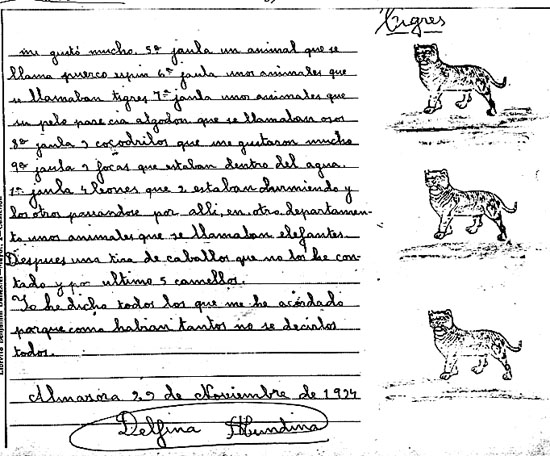 Tigres
me gustó mucho. 5ª jaula un animal que se
llama puerco espin 6ª jaula unos animales que
se llamaban tigres 7ª jaula unos animales que
su pelo parecia algodon que se llamaban osos
8ª jaula 2 cocodrilos que me gustason mucho
9ª jaula 2 focas que estaban dentro del agua.
1ª jaula 4 leones que 2 estaban durmiendo y
los otros paseandose por alli, en otro departamen-
to unos animales que se llamaban elefantes
Despues una tira de caballos que no los he con-
tado y por ultimo 5 camellos.
Yo he dicho todos los que me he acordado
porque como habian tantos no se decirlos
todos.
Almasora 29 de Noviembre de 1924
Delfina